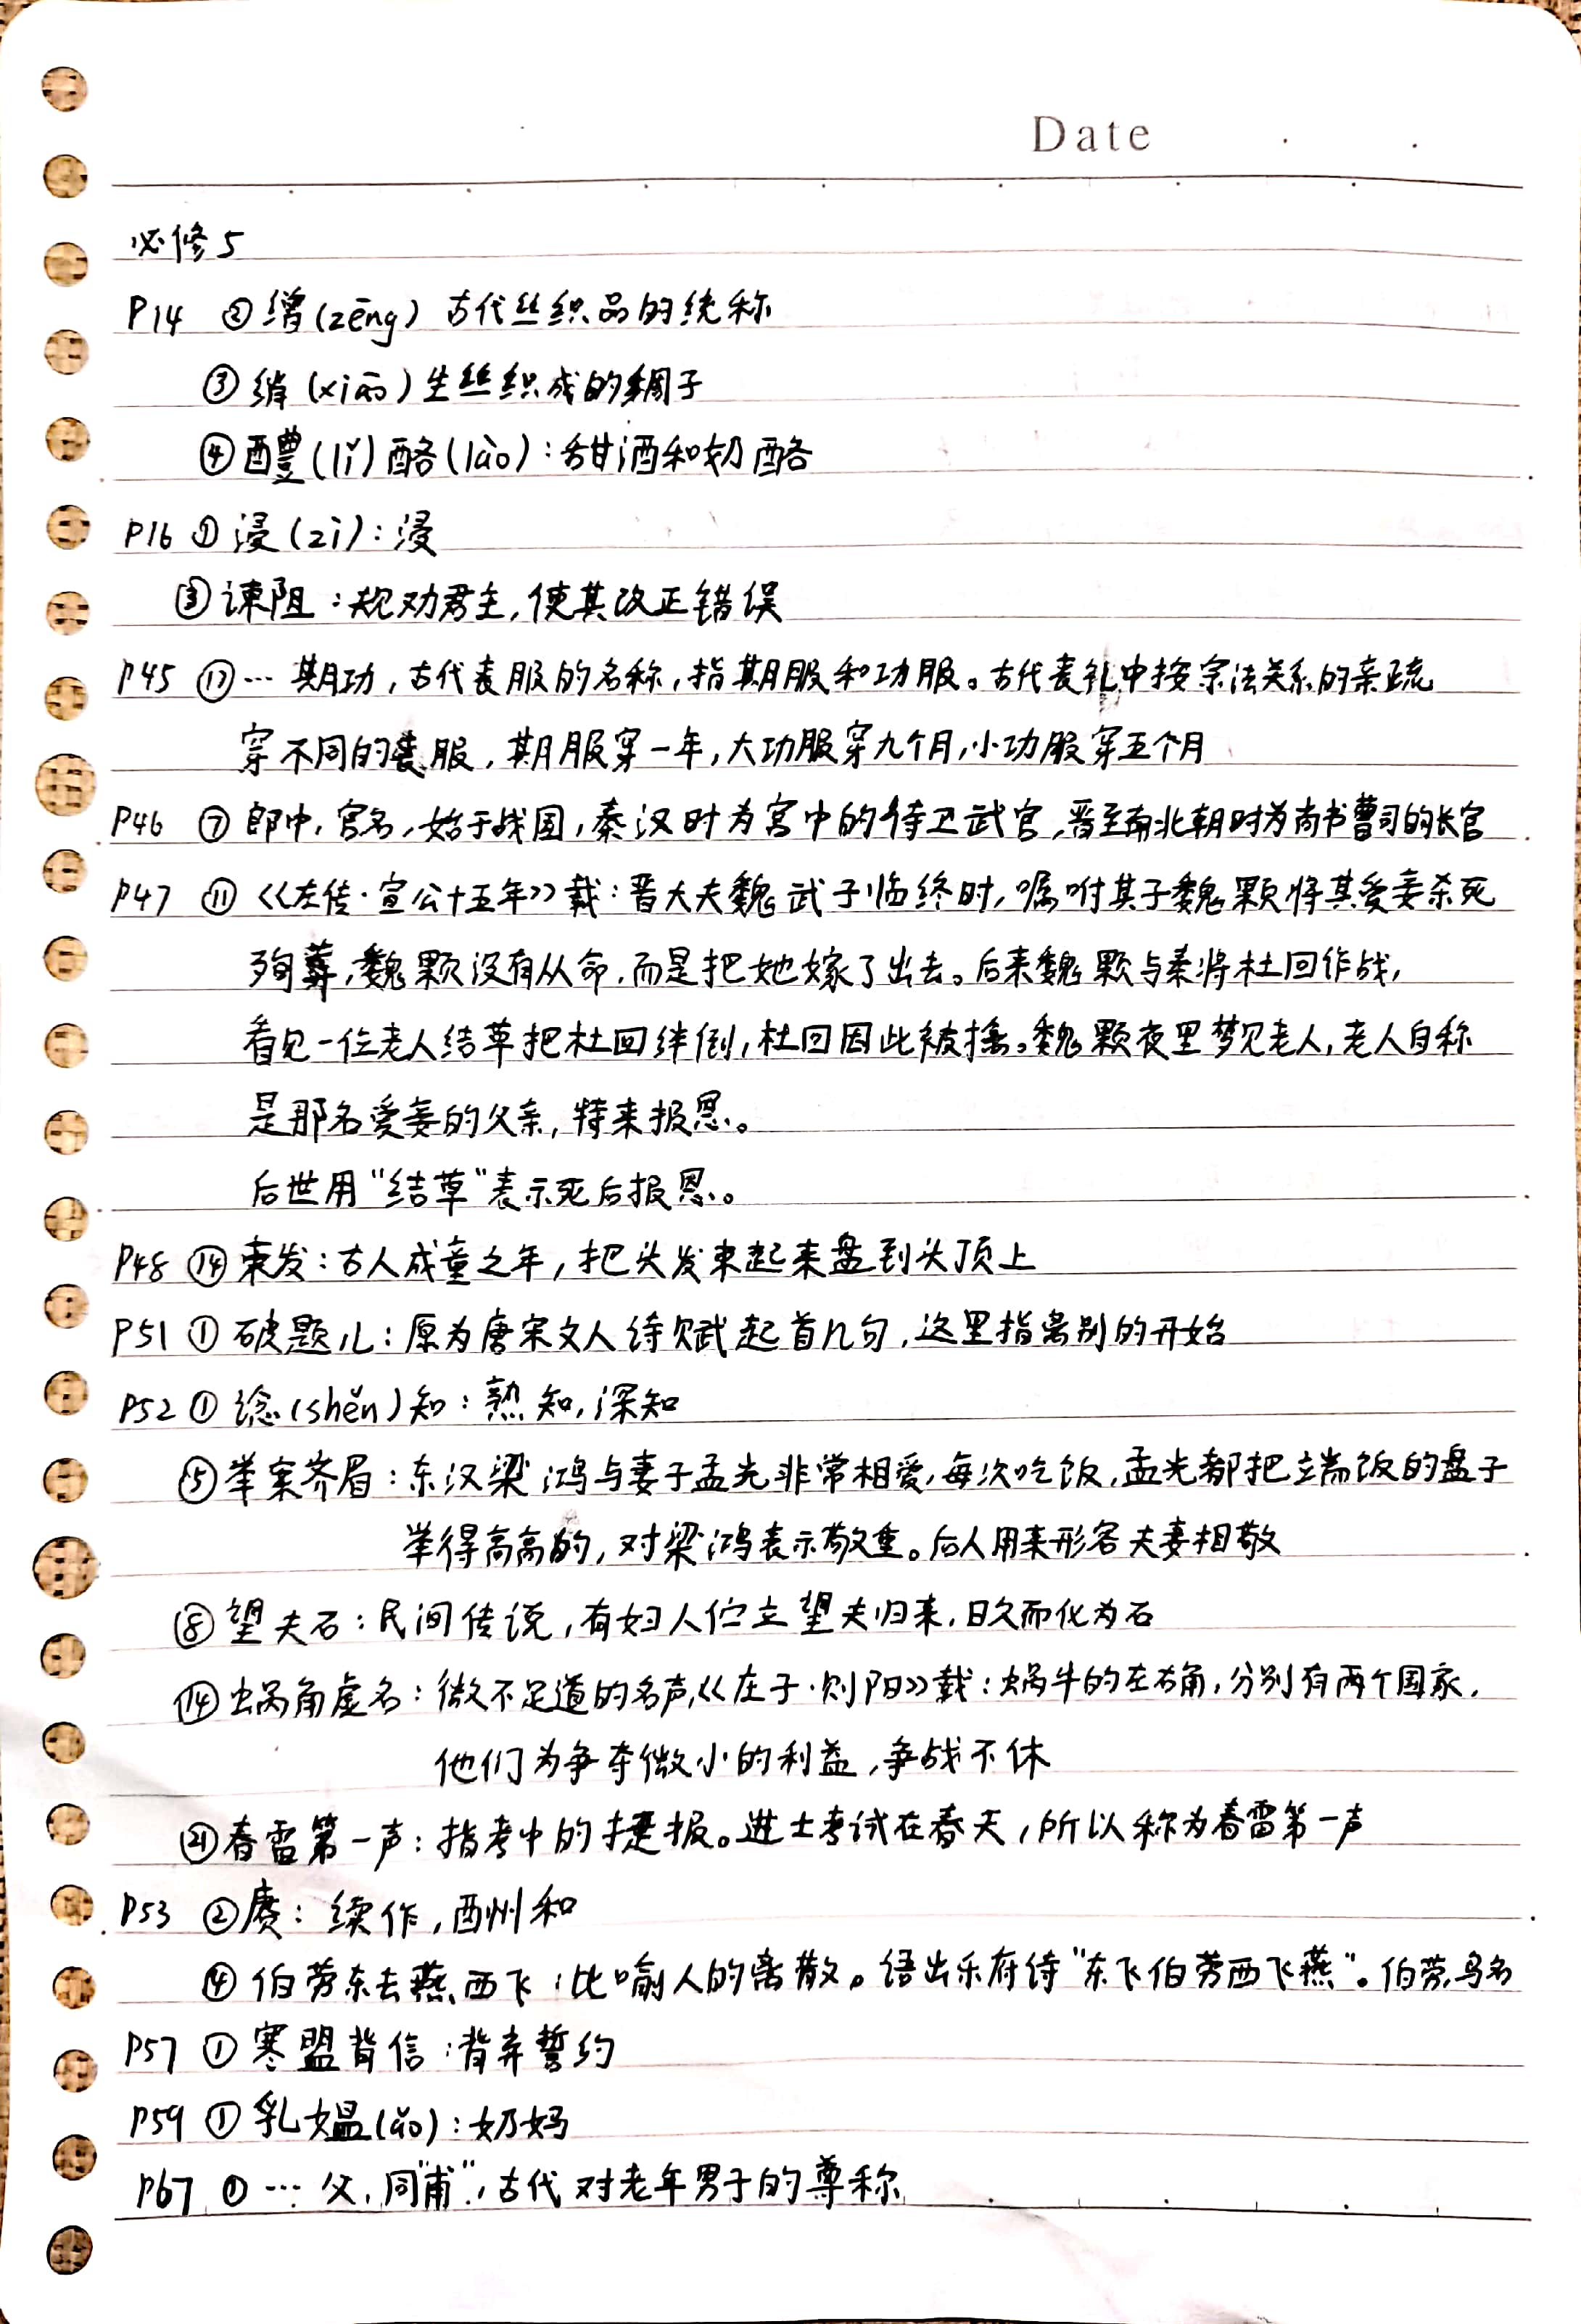 Date
必修5
P14 ② 缯(zēng) 古代丝织品的统称
③ 绡(xiāo)生丝织成的绸子
④ 醴(lǐ)酪(lào):甜酒和奶酪
P16 ① 浸(zì):浸
③ 谏阻:规劝君主,使其改正错误
P45 ⑰… 期功,古代丧服的名称,指期服和功服。古代丧礼中按宗法关系的亲疏
穿不同的丧服,期服穿一年,大功服穿九个月,小功服穿五个月
P46 ⑦ 郎中,官名,始于战国,秦汉时为宫中的侍卫武官,晋至南北朝时为尚书曹司的长官
P47 ⑪ 《左传·宣公十五年》载:晋大夫魏武子临终时,嘱咐其子魏颗将其爱妾杀死
殉葬,魏颗没有从命,而是把她嫁了出去。后来魏颗与秦将杜回作战,
看见一位老人结草把杜回绊倒,杜回因此被擒。魏颗夜里梦见老人,老人自称
是那名爱妾的父亲,特来报恩。
后世用“结草”表示死后报恩。
P48 ⑭ 束发:古人成童之年,把头发束起来盘到头顶上
P51 ① 破题儿:原为唐宋文人诗赋起首几句,这里指离别的开始
P52 ① 谂(shěn)知:熟知,深知
⑤ 举案齐眉:东汉梁鸿与妻子孟光非常相爱,每次吃饭,孟光都把端饭的盘子
举得高高的,对梁鸿表示敬重。后人用来形容夫妻相敬
⑧ 望夫石:民间传说,有妇人伫立望夫归来,日久而化为石
⑭ 蜗角虚名:微不足道的名声,《庄子·则阳》载:蜗牛的左右角,分别有两个国家,
他们为争夺微小的利益,争战不休
㉑ 春雷第一声:指考中的捷报。进士考试在春天,所以称为春雷第一声
P53 ② 赓:续作,酬和
④ 伯劳东去燕西飞:比喻人的离散。语出乐府诗“东飞伯劳西飞燕”。伯劳,鸟名
P57 ① 寒盟背信:背弃誓约
P59 ① 乳媪(ǎo):奶妈
P67 ① … 父,同“甫”,古代对老年男子的尊称